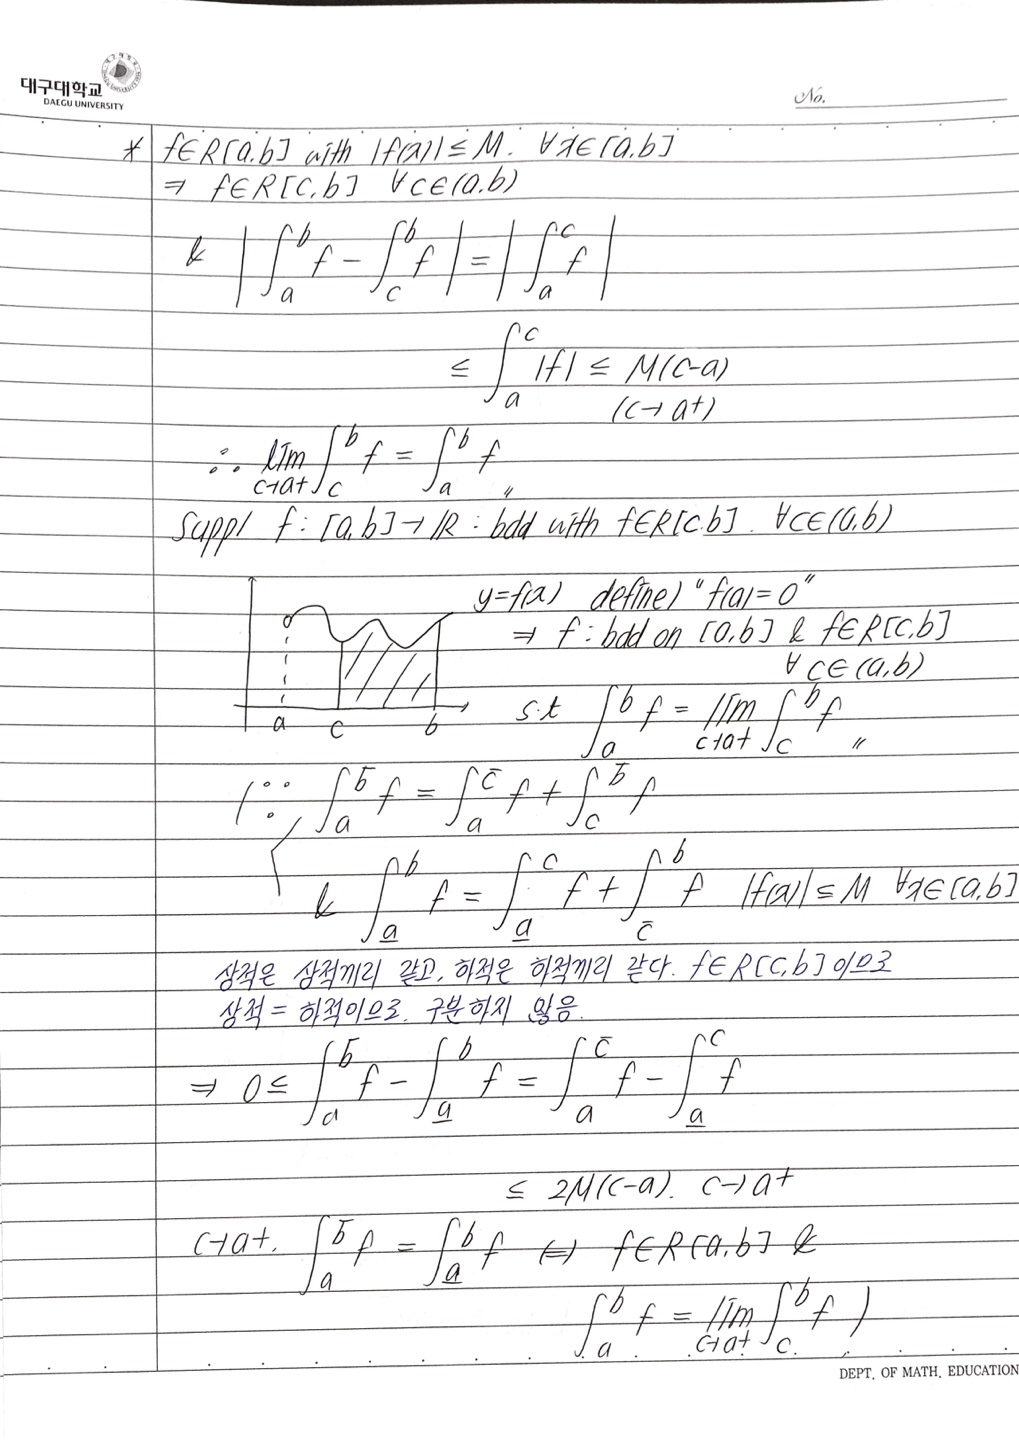 대구대학교
DAEGU UNIVERSITY
No.
* f∈R[a,b] with |f(x)| ≤ M. ∀x∈[a,b]
⇒ f∈R[c,b] ∀c∈(a,b)
& |∫_a^b f − ∫_c^b f| = |∫_a^c f|
≤ ∫_a^c |f| ≤ M(c-a)
(c→a+)
∴ lim_{c→a+} ∫_c^b f = ∫_a^b f 〃
Supp) f : [a,b]→ℝ : bdd with f∈R[c,b]. ∀c∈(a,b)
y=f(x) define) "f(a)=0"
⇒ f : bdd on [a,b] & f∈R[c,b]
∀c∈(a,b)
a c b
s.t ∫_a^b f = lim_{c→a+} ∫_c^b f 〃
(∵ ∫_a^b̄ f = ∫_a^c̄ f + ∫_c^b̄ f
& ∫_a̲^b f = ∫_a̲^c f + ∫_c̄^b f |f(x)| ≤ M ∀x∈[a,b]
상적은 상적끼리 같고, 하적은 하적끼리 같다. f∈R[c,b]이므로
상적 = 하적이므로. 구분하지 않음.
⇒ 0 ≤ ∫_a^b̄ f − ∫_a̲^b f = ∫_a^c̄ f − ∫_a̲^c f
≤ 2M(c-a). c→a+
c→a+. ∫_a^b̄ f = ∫_a̲^b f ⇔ f∈R[a,b] &
∫_a^b f = lim_{c→a+} ∫_c^b f )
DEPT. OF MATH. EDUCATION